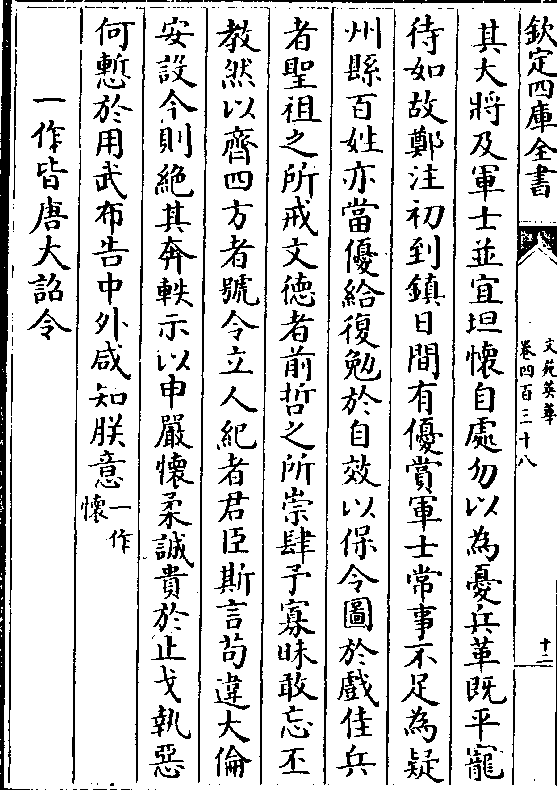 欽定四庫全書
文苑英華
卷四百三十八
十二
其大將及軍士並宜坦懷自處勿以為憂兵革既平寵
待如故鄭注初到鎮日間有優賞軍士常事不足為疑
州縣百姓亦當優給復勉於自效以保令圖於戲佳兵
者聖祖之所戒文德者前哲之所崇肆予寡昧敢忘丕
教然以齊四方者號令立人紀者君臣斯言苟違大倫
安設今則絶其奔軼示以申嚴懷柔誠貴於止戈執惡
何慙於用武布告中外咸知朕意一作懷
一作皆唐大詔令